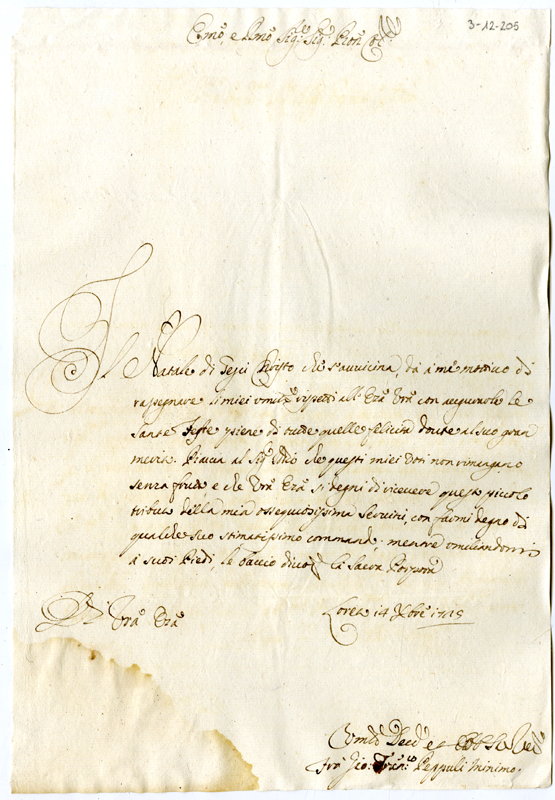 3-12-205
Emo, e Rmo Sigre Sigr Pron Col
Il Natale di Gesù Christo che s'avvicina, dà a me motivo di
rassegnare li miei umilmi rispetti all' Eza Vra con augurarle le
Sante Feste piene di tutte quelle felicità dovute al suo gran
merito. Piaccia al Sigr Iddio che questi miei voti non rimangano
senza frutto e che Vra Eza si degni di ricevere questo piccolo
tributo della mia ossequiosissima servitù, con farmi degno di
qualche suo stimatissimo commando, mentre umiliandomi
a suoi Piedi, le baccio la Sacra Porpora
Di Vra Eza
Loreto 14 Xbre
Fra Gio: Franco Peppuli Minimo.